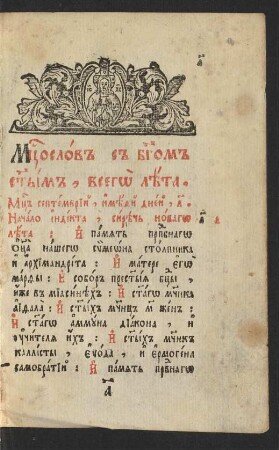 Мцⷭ҇ослѡ́въ съ бг҃омъ
ст҃ы́мъ, всегѡ̀ лѣ́та.
Мцⷭ҇ъ септе́мврїй, и҆мѣ́ѧй дне́й, л҃.
Нача́ло і҆нди́кта, си́рѣчь но́вагѡ а҃
лѣ́та: И҆ па́мѧть прⷣпбнагѡ
ѻ҆ц҃а̀ на́шегѡ сѷмеѡ́на сто́лпника
и҆ а҆рхїмандрі́та: И҆ ма́тере є҆гѡ̀
ма́рды: И҆ собо́ръ прест҃ы́ѧ бц҃ы,
и҆́же въ мїасинѣ́хъ: И҆ ст҃а́гѡ мч҃нка
а҆іда́ла: И҆ ст҃ы́хъ мч҃нцъ м҃ же́нъ:
И҆ ст҃а́гѡ а҆ммꙋ́на дїа́кона, и҆
ᲂу҆чи́телѧ и҆́хъ: И҆ ст҃ы́хъ мч҃нкъ
калли́сты, є҆во́да, и҆ є҆рмоге́на
самобра́тїй: И҆ па́мѧть прв҃нагѡ
а҃